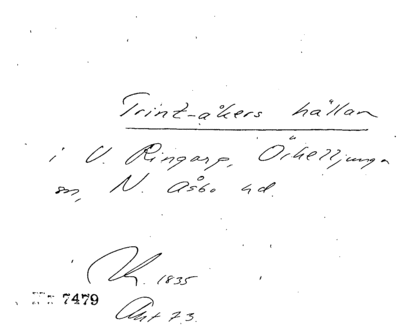 Trint-åkers hällan
i V. Ringarp, Örkelljunga
sn, N. Åsbo hd.
1835
Nr 7479
Ant 73.